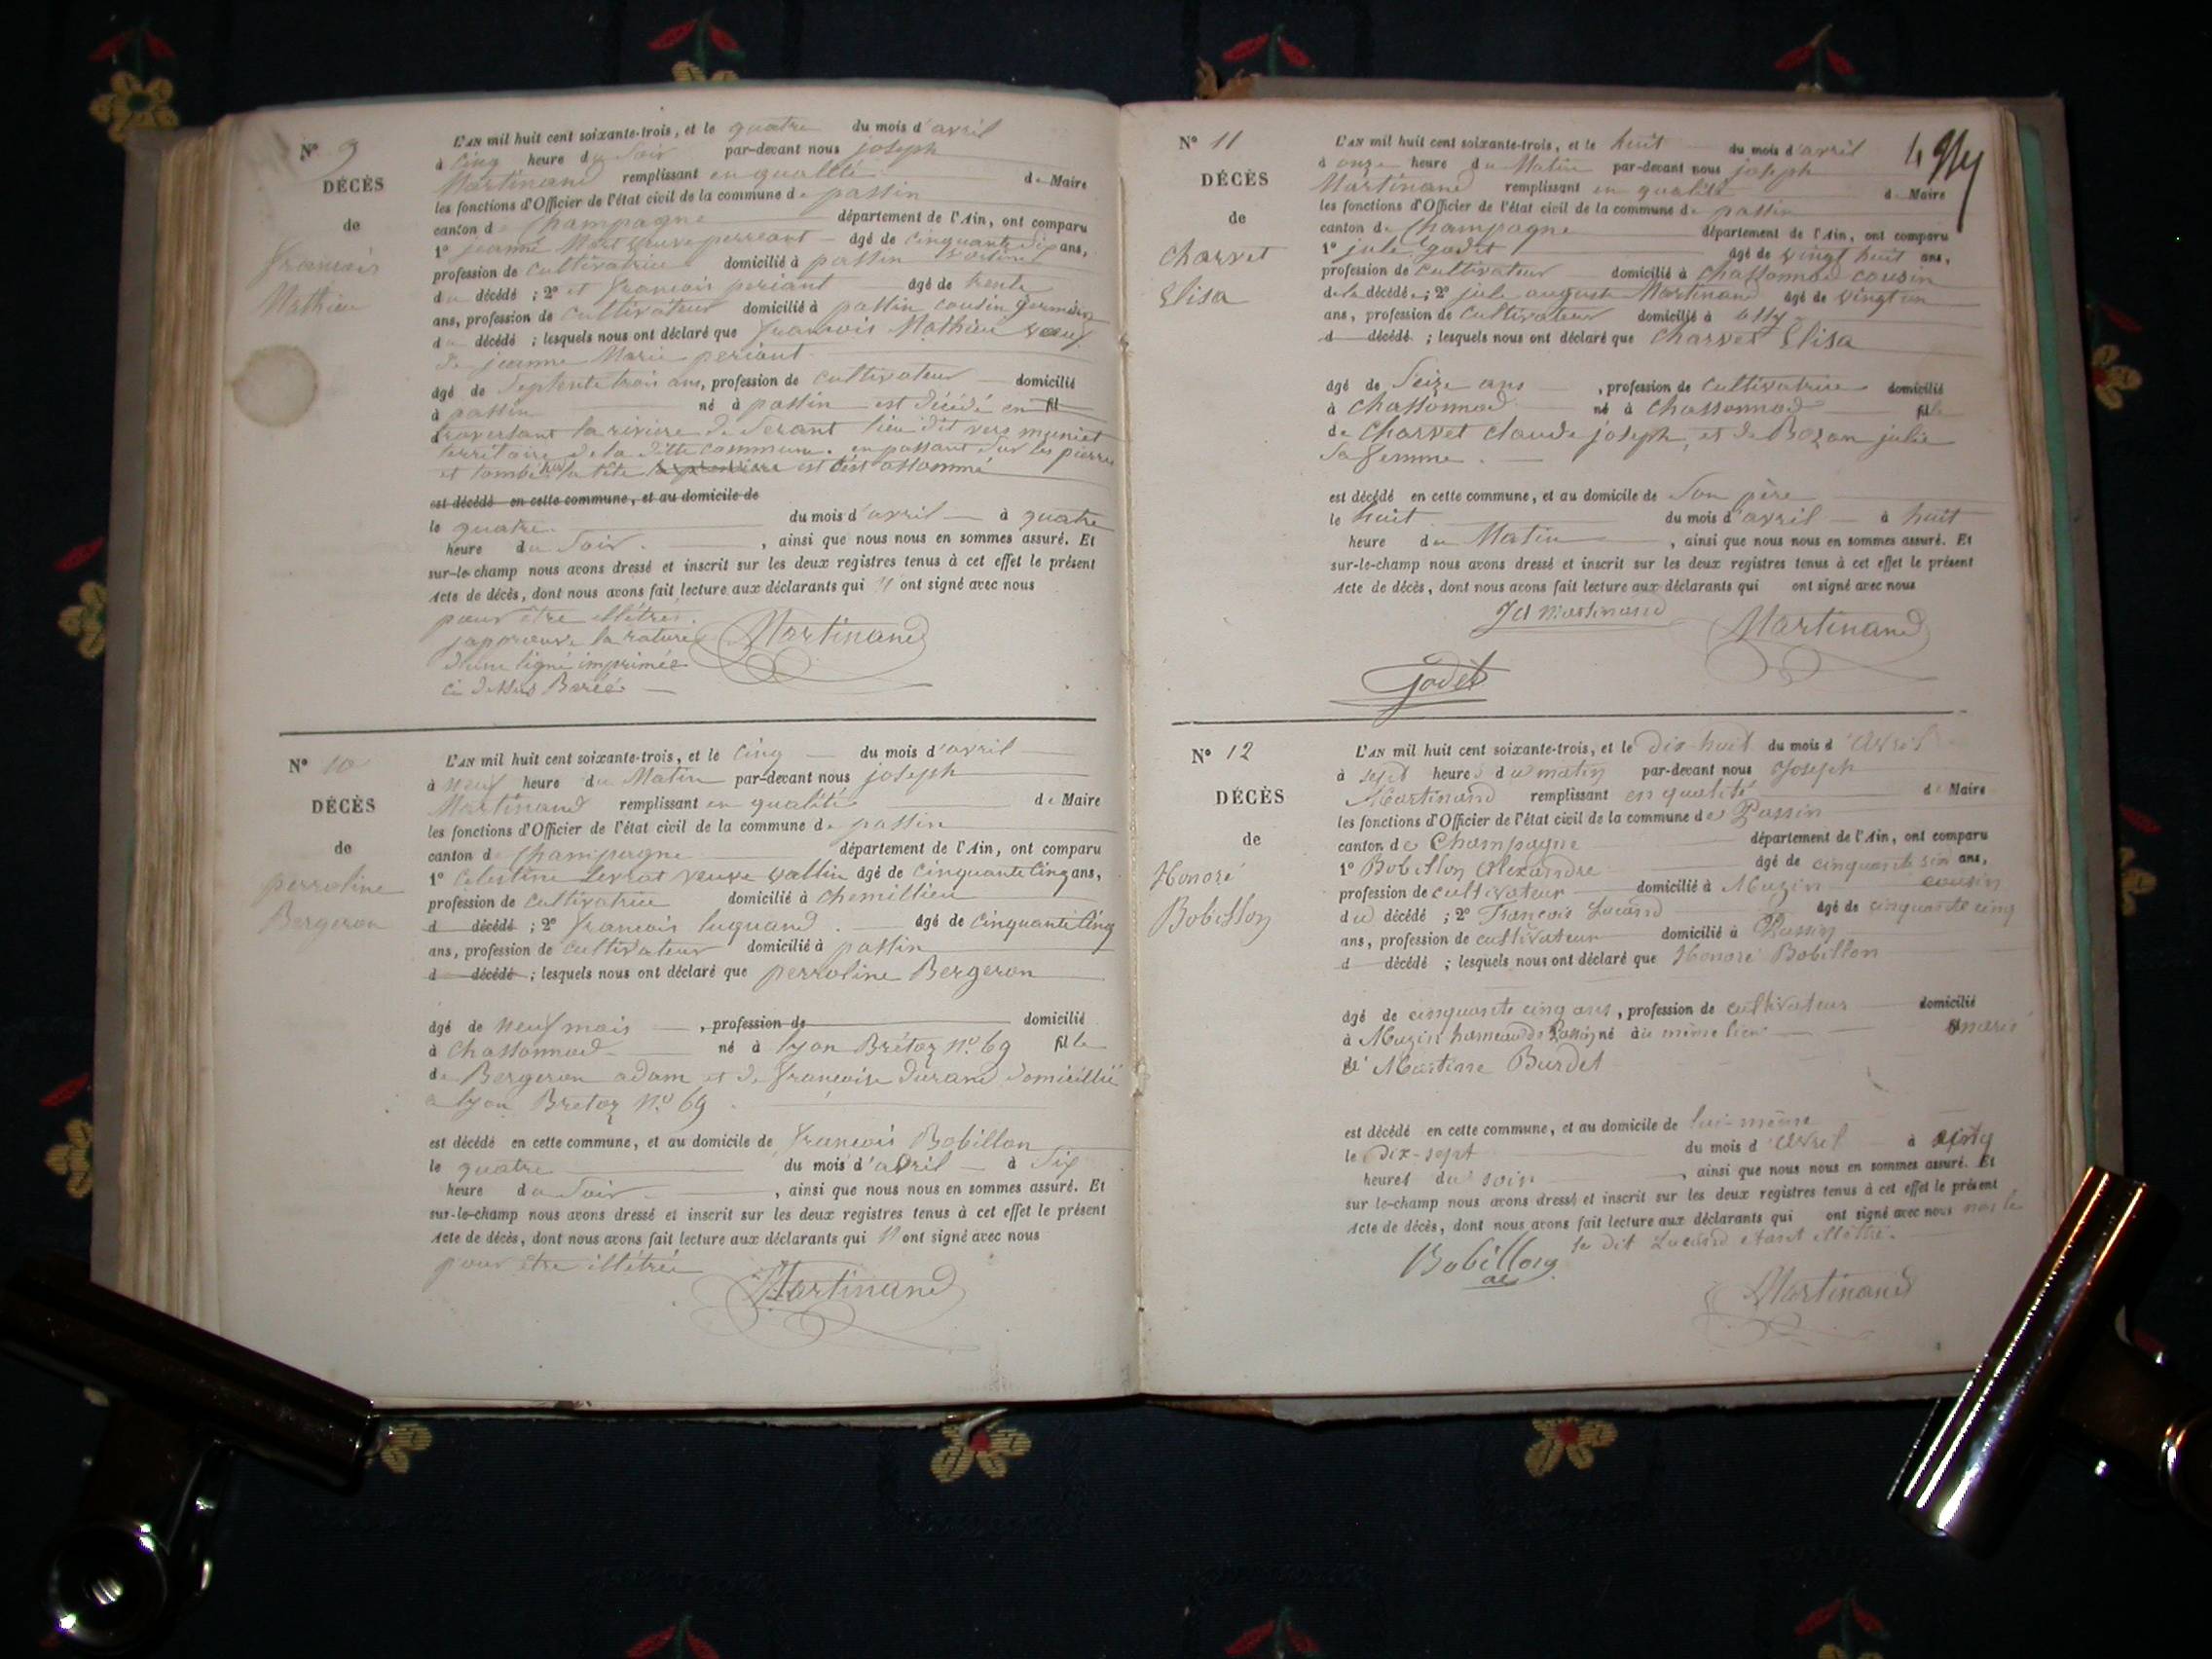 N° 9
DÉCÈS
de
François
Mathieu
L'AN mil huit cent soixante-trois, et le quatre du mois d'avril
à cinq heure du Soir par-devant nous joseph
Martinand remplissant en quallité de Maire
les fonctions d'Officier de l'état civil de la commune de passin
canton de Champagne département de l'Ain, ont comparu
1° jeanne veuve perreant âgé de cinquante dix ans,
profession de Cultivatrice domicilié à passin
du décédé ; 2° et François periant âgé de trente
ans, profession de Cultivateur domicilié à passin cousin germain
du décédé ; lesquels nous ont déclaré que François Mathieu veuf
de jeanne Marie periant
âgé de Septente trois ans, profession de Cultivateur domicilié
à passin né à passin est décédé en fil
traversant la rivière de Serant lieu dit vers muniet
territoire de la ditte commune. en passant sur les pierres
et tombé sur la tête est s'est assommé
est décédé en cette commune, et au domicile de
le quatre du mois d'avril à quatre
heure du Soir , ainsi que nous nous en sommes assuré. Et
sur-le-champ nous avons dressé et inscrit sur les deux registres tenus à cet effet le présent
Acte de décès, dont nous avons fait lecture aux déclarants qui n ont signé avec nous
pour être illétrés.
japrouve la rature
d'une ligne imprimée
ci dessus Barée
Martinand
N° 10
DÉCÈS
de
perroline
Bergeron
L'AN mil huit cent soixante-trois, et le cinq du mois d'avril
à neuf heure du Matin par-devant nous joseph
Martinand remplissant en qualité de Maire
les fonctions d'Officier de l'état civil de la commune de passin
canton de Champagne département de l'Ain, ont comparu
1° Celestine Levrat veuve vallin âgé de Cinquante Cinq ans,
profession de Cultivatrice domicilié à chemillieu
d décédé ; 2° François luquand. âgé de cinquante Cinq
ans, profession de Cultivateur domicilié à passin
d décédé ; lesquels nous ont déclaré que perroline Bergeron
âgé de neuf mois , profession de domicilié
à Chassonnod né à lyon Brétoz n° 69 fille
de Bergeron adam et de Françoise durand domicillié
a lyon Bretoz n° 69
est décédé en cette commune, et au domicile de François Bobillon
le quatre du mois d'avril à Six
heure du Soir , ainsi que nous nous en sommes assuré. Et
sur-le-champ nous avons dressé et inscrit sur les deux registres tenus à cet effet le présent
Acte de décès, dont nous avons fait lecture aux déclarants qui n ont signé avec nous
pour être illétrée
Martinand
N° 11
DÉCÈS
de
Charvet
Elisa
L'AN mil huit cent soixante-trois, et le huit du mois d'avril
à onze heure du Matin par-devant nous joseph
Martinand remplissant en qualité de Maire
les fonctions d'Officier de l'état civil de la commune de passin
canton de Champagne département de l'Ain, ont comparu
1° jule godet âgé de vingt huit ans,
profession de Cultivateur domicilié à Chassonnod cousin
de la décédée ; 2° jule auguste Martinand âgé de vingt un
ans, profession de Cultivateur domicilié à
d décédé ; lesquels nous ont déclaré que Charvet Elisa
âgé de Seize ans , profession de Cultivatrice domicilié
à Chassonnod né à Chassonnod fille
de Charvet claude joseph, et de Bozon julie
Sa femme.
est décédé en cette commune, et au domicile de Son père
le huit du mois d'avril à huit
heure du Matin , ainsi que nous nous en sommes assuré. Et
sur-le-champ nous avons dressé et inscrit sur les deux registres tenus à cet effet le présent
Acte de décès, dont nous avons fait lecture aux déclarants qui ont signé avec nous
JA Martinand
Martinand
Godet
N° 12
DÉCÈS
de
Honoré
Bobillon
L'AN mil huit cent soixante-trois, et le dix-huit du mois d'Avril
à sept heures du matin par-devant nous Joseph
Martinand remplissant en qualité de Maire
les fonctions d'Officier de l'état civil de la commune de Passin
canton de Champagne département de l'Ain, ont comparu
1° Bobillon Alexandre âgé de cinquante six ans,
profession de cultivateur domicilié à Muzin cousin
du décédé ; 2° François Lucand âgé de cinquante cinq
ans, profession de cultivateur domicilié à Passin
d décédé ; lesquels nous ont déclaré que Honoré Bobillon
âgé de cinquante cinq ans, profession de cultivateur domicilié
à Muzin hameau de Passin né au même lieu marié
à Martine Burdet
est décédé en cette commune, et au domicile de lui-même
le dix-sept du mois d'Avril à cinq
heures du soir , ainsi que nous nous en sommes assuré. Et
sur-le-champ nous avons dressé et inscrit sur les deux registres tenus à cet effet le présent
Acte de décès, dont nous avons fait lecture aux déclarants qui ont signé avec nous
le dit Lucand étant illétré.
Bobillon
al
Martinand